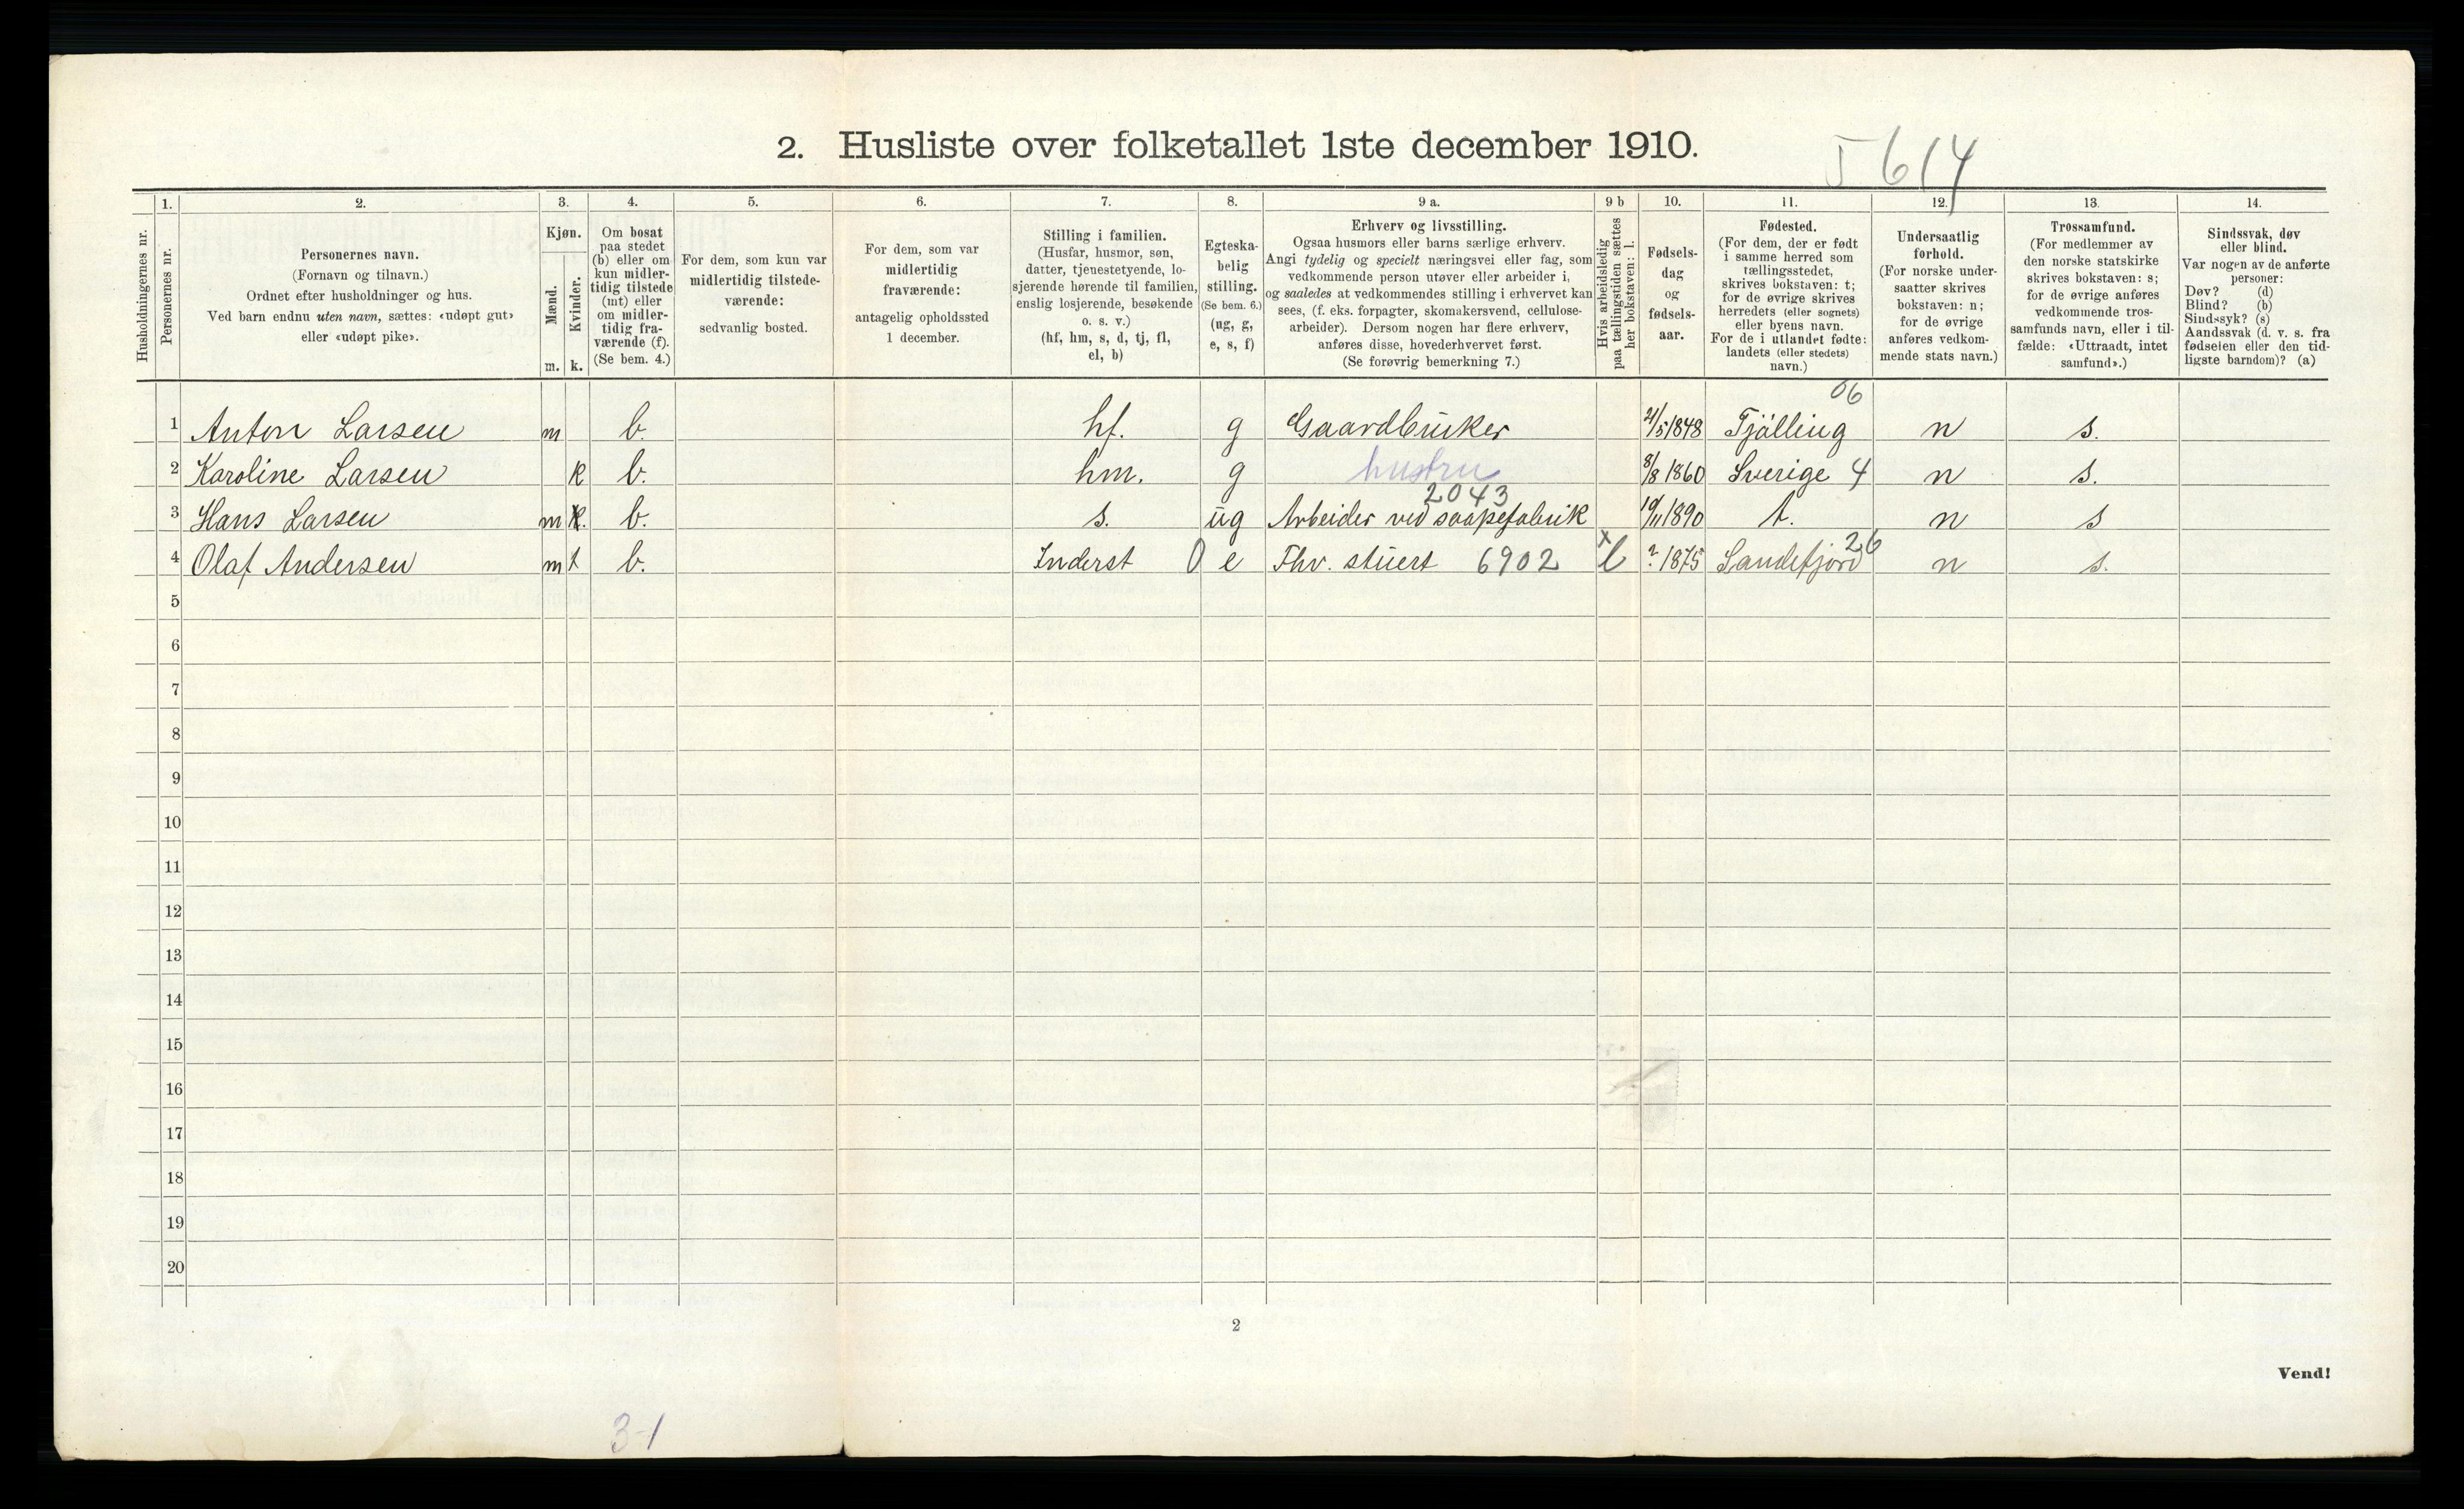 2. Husliste over folketallet 1ste december 1910.
5614
1. 2. 3. 4. 5. 6. 7. 8. 9 a. 9 b 10. 11. 12. 13. 14.
Husholdningernes nr.
Personernes nr.
Personernes navn.
(Fornavn og tilnavn.)
Ordnet efter husholdninger og hus.
Ved barn endnu uten navn, sættes: «udøpt gut»
eller «udøpt pike».
Kjøn.
Mænd.
Kvinder.
m. k.
Om bosat
paa stedet
(b) eller om
kun midler-
tidig tilstede
(mt) eller
om midler-
tidig fra-
værende (f).
(Se bem. 4.)
For dem, som kun var
midlertidig tilstede-
værende:
sedvanlig bosted.
For dem, som var
midlertidig
fraværende:
antagelig opholdssted
1 december.
Stilling i familien.
(Husfar, husmor, søn,
datter, tjenestetyende, lo-
sjerende hørende til familien,
enslig losjerende, besøkende
o. s. v.)
(hf, hm, s, d, tj, fl,
el, b)
Egteska-
belig
stilling.
(Se bem. 6.)
(ug, g,
e, s, f)
Erhverv og livsstilling.
Ogsaa husmors eller barns særlige erhverv.
Angi tydelig og specielt næringsvei eller fag, som
vedkommende person utøver eller arbeider i,
og saaledes at vedkommendes stilling i erhvervet kan
sees, (f. eks. forpagter, skomakersvend, cellulose-
arbeider). Dersom nogen har flere erhverv,
anføres disse, hovederhvervet først.
(Se forøvrig bemerkning 7.)
Hvis arbeidsledig
paa tællingstiden sættes
her bokstaven: l.
Fødsels-
dag
og
fødsels-
aar.
Fødested.
(For dem, der er født
i samme herred som
tællingsstedet,
skrives bokstaven: t;
for de øvrige skrives
herredets (eller sognets)
eller byens navn.
For de i utlandet fødte:
landets (eller stedets)
navn.)
Undersaatlig
forhold.
(For norske under-
saatter skrives
bokstaven: n;
for de øvrige
anføres vedkom-
mende stats navn.)
Trossamfund.
(For medlemmer av
den norske statskirke
skrives bokstaven: s;
for de øvrige anføres
vedkommende tros-
samfunds navn, eller i til-
fælde: «Uttraadt, intet
samfund».)
Sindssvak, døv
eller blind.
Var nogen av de anførte
personer:
Døv? (d)
Blind? (b)
Sindssyk? (s)
Aandssvak (d. v. s. fra
fødselen eller den tid-
ligste barndom)? (a)
06
1 Anton Larsen m b. hf. g Gaardbruker 21/5 1848 Tjølling n s.
2 Karoline Larsen k b. hm. g hustru 8/8 1860 Sverige 4 n s.
2043
3 Hans Larsen m k. b. s. ug Arbeider ved saapefabrik 19/11 1890 t. n s
26
4 Olaf Andersen m b. Inderst 0 e Fhv. stuert 6902 x l ? 1875 Sandefjord n s.
5
6
7
8
9
10
11
12
13
14
15
16
17
18
19
20
2
Vend!
3-1